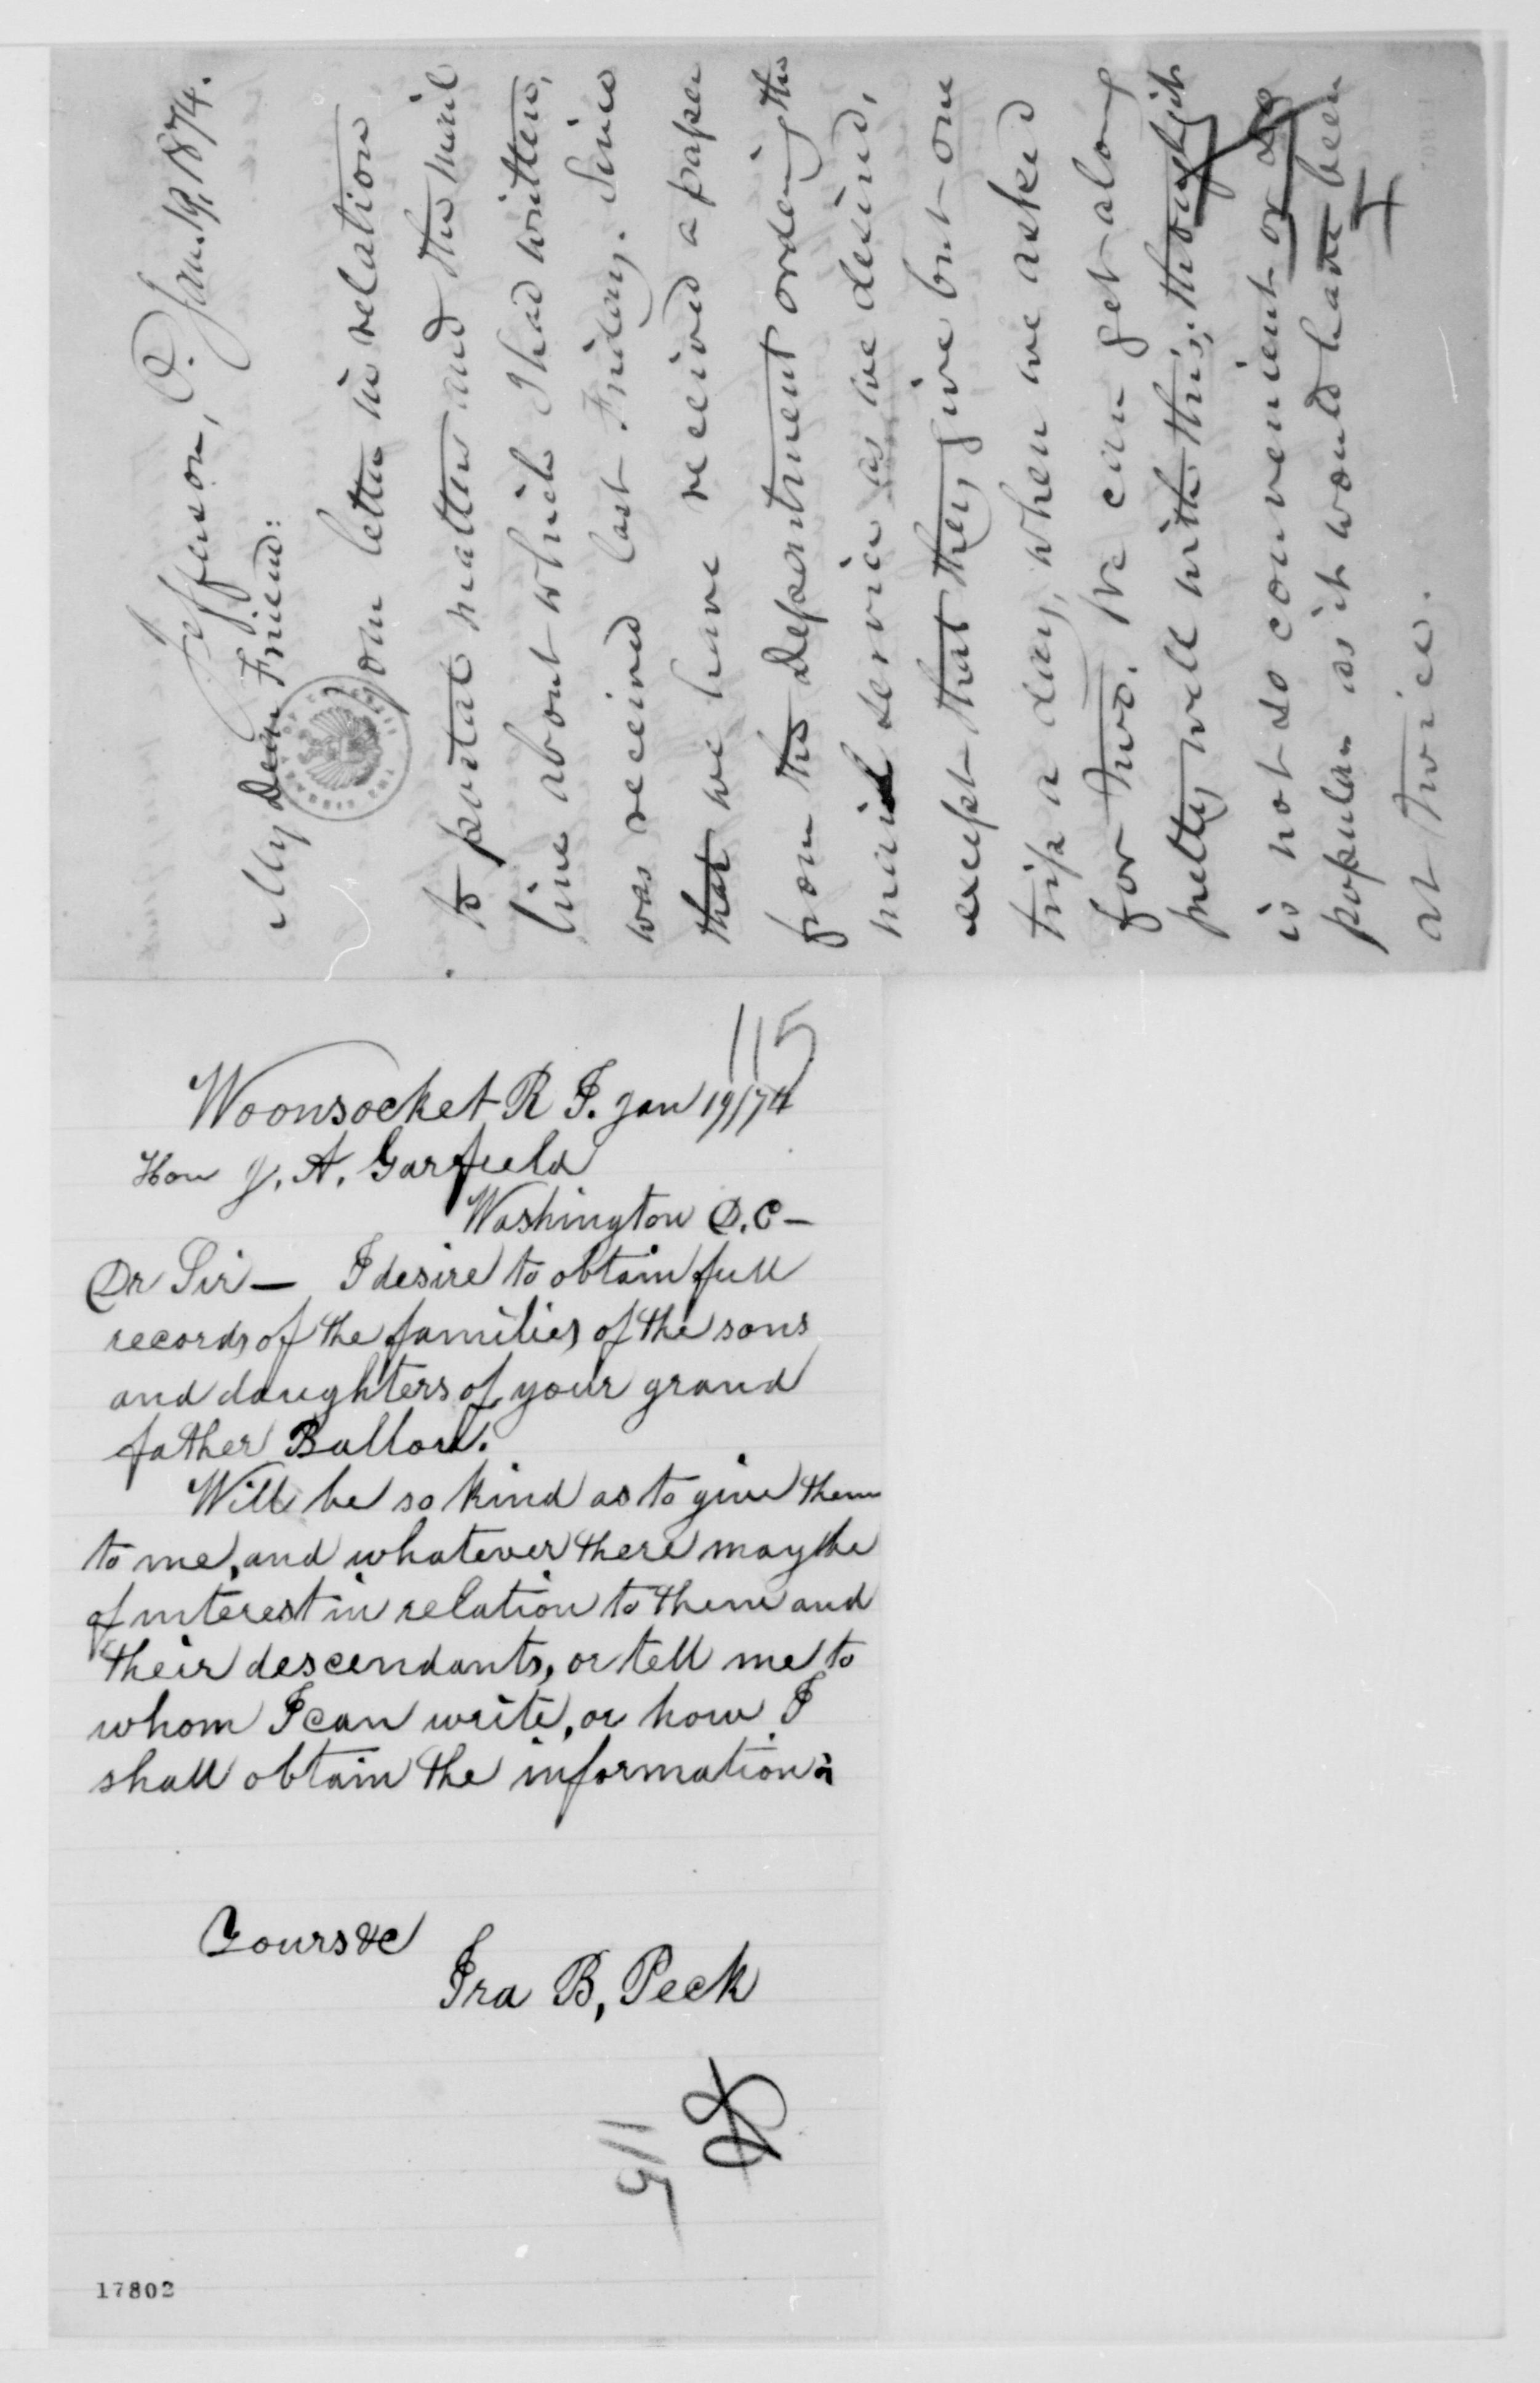 Jefferson, O. Jan. 19, 1874.
My Dear Friend:
Your letter in relation
to postal matters and the mail
line about which I had written,
was received last Friday. Since
that we have received a paper
from the Department ordering the
mail service as we desired,
except that they give but one
trip a day, when we asked
for two. We can get along
pretty well with this, though it
is not so convenient or so
popular as it would have been
at twice.
115
Woonsocket R I. Jan 19/74
Hon J. A. Garfield
Washington D.C—
Dr Sir— I desire to obtain full
records of the families of the sons
and daughters of your grand
father Ballou.
Will be so kind as to give them
to me, and whatever there may be
of interest in relation to them and
their descendants, or tell me to
whom I can write, or how I
shall obtain the information.
Yours &c
Ira B, Peck
115
17802